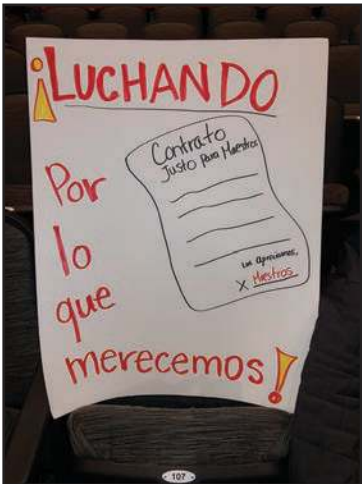 ¡LUCHANDO
Por
lo
que
merecemos!
Contrato
Justo Para Maestros
Los apreciamos,
X Maestros
107